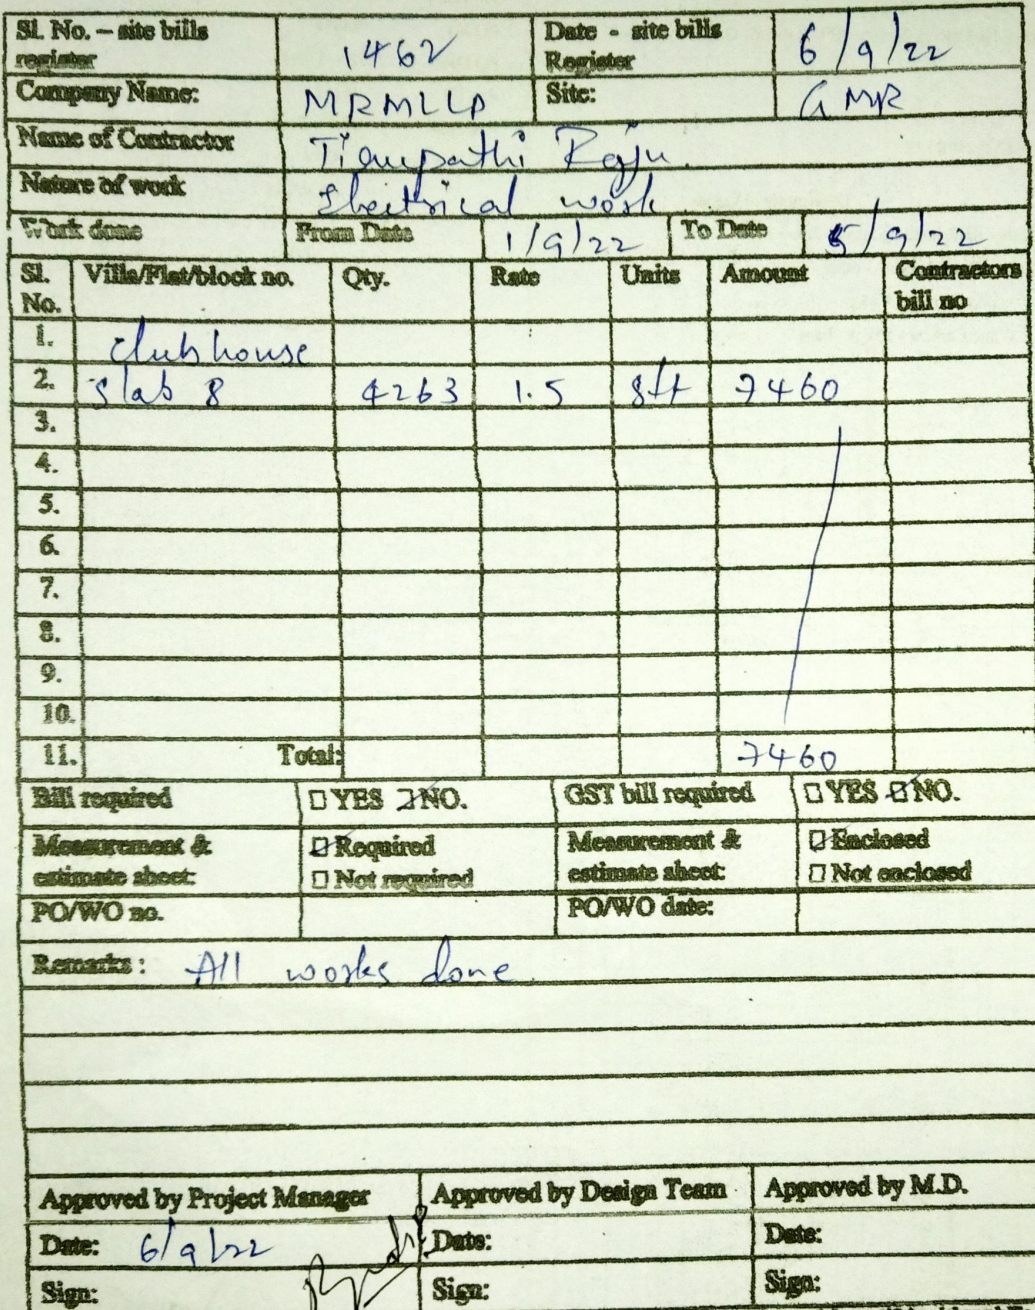 Sl. No. – site bills register 1462 Date - site bills Register 6/9/22
Company Name: MRMLLP Site: GMR
Name of Contractor Tirupathi Raju.
Nature of work Electrical work
Work done From Date 1/9/22 To Date 5/9/22
Sl. No. Villa/Flat/block no. Qty. Rate Units Amount Contractors bill no
1. clubhouse
2. slab 8 4263 1.5 sft 7460
3.
4.
5.
6.
7.
8.
9.
10.
11. Total: 7460
Bill required ☐ YES ☑ NO. GST bill required ☐ YES ☑ NO.
Measurement & estimate sheet: ☑ Required ☐ Not required Measurement & estimate sheet: ☑ Enclosed ☐ Not enclosed
PO/WO no. PO/WO date:
Remarks: All works done
Approved by Project Manager Approved by Design Team Approved by M.D.
Date: 6/9/22 Date: Date:
Sign: Sign: Sign: